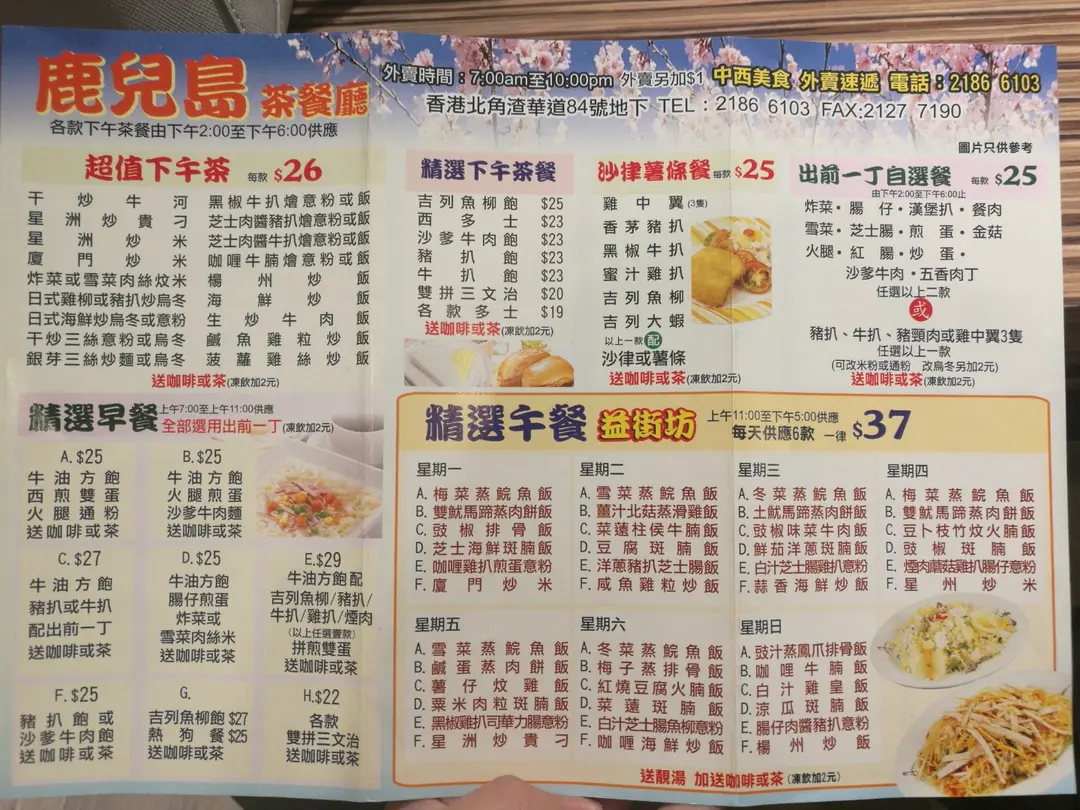 鹿兒島 茶餐廳
各款下午茶餐由下午2:00至下午6:00供應
外賣時間：7:00am至10:00pm 外賣另加$1 中西美食 外賣速遞 電話：2186 6103
香港北角渣華道84號地下 TEL：2186 6103 FAX:2127 7190
圖片只供參考
超值下午茶 每款 $26
干炒牛河 黑椒牛扒燴意粉或飯
星洲炒貴刁 芝士肉醬豬扒燴意粉或飯
星洲炒米 芝士肉醬牛扒燴意粉或飯
廈門炒米 咖喱牛腩燴意粉或飯
炸菜或雪菜肉絲炆米 楊州炒飯
日式雞柳或豬扒炒烏冬 海鮮炒飯
日式海鮮炒烏冬或意粉 生炒牛肉飯
干炒三絲意粉或烏冬 鹹魚雞粒炒飯
銀芽三絲炒麵或烏冬 菠蘿雞絲炒飯
送咖啡或茶(凍飲加2元)
精選下午茶餐
吉列魚柳飽 $25
西多士 $23
沙爹牛肉飽 $23
豬扒飽 $23
牛扒飽 $23
雙拼三文治 $20
各款多士 $19
送咖啡或茶(凍飲加2元)
沙律薯條餐 每款 $25
雞中翼(3隻)
香茅豬扒
黑椒牛扒
蜜汁雞扒
吉列魚柳
吉列大蝦
以上一款 配
沙律或薯條
送咖啡或茶(凍飲加2元)
出前一丁自選餐 每款 $25
由下午2:00至下午6:00止
炸菜・腸仔・漢堡扒・餐肉
雪菜・芝士腸・煎蛋・金菇
火腿・紅腸・炒蛋・
沙爹牛肉・五香肉丁
任選以上二款
或
豬扒、牛扒、豬頸肉或雞中翼3隻
任選以上一款
(可改米粉或通粉 改烏冬另加2元)
送咖啡或茶(凍飲加2元)
精選早餐 上午7:00至上午11:00供應
全部選用出前一丁(凍飲加2元)
A. $25
牛油方飽
西煎雙蛋
火腿通粉
送咖啡或茶
B. $25
牛油方飽
火腿煎蛋
沙爹牛肉麵
送咖啡或茶
C. $27
牛油方飽
豬扒或牛扒
配出前一丁
送咖啡或茶
D. $25
牛油方飽
腸仔煎蛋
炸菜或
雪菜肉絲米
送咖啡或茶
E. $29
牛油方飽 配
吉列魚柳/豬扒/
牛扒/雞扒/煙肉
(以上任選壹款)
拼煎雙蛋
送咖啡或茶
F. $25
豬扒飽或
沙爹牛肉飽
送咖啡或茶
G.
吉列魚柳飽 $27
熱狗餐 $25
送咖啡或茶
H. $22
各款
雙拼三文治
送咖啡或茶
精選午餐 益街坊 上午11:00至下午5:00供應
每天供應6款 一律 $37
星期一
A. 梅菜蒸鯇魚飯
B. 雙魷馬蹄蒸肉餅飯
C. 豉椒排骨飯
D. 芝士海鮮斑腩飯
E. 咖喱雞扒腸仔意粉
F. 廈門炒米
星期二
A. 雪菜蒸鯇魚飯
B. 薑汁北菇蒸滑雞飯
C. 菜薳柱侯牛腩飯
D. 豆腐斑腩飯
E. 洋蔥豬扒芝士腸飯
F. 咸魚雞粒炒飯
星期三
A. 冬菜蒸鯇魚飯
B. 土魷馬蹄蒸肉餅飯
C. 豉椒味菜牛肉飯
D. 鮮茄洋蔥斑腩飯
E. 白汁芝士腸雞扒意粉
F. 蒜香海鮮炒飯
星期四
A. 梅菜蒸鯇魚飯
B. 雙魷馬蹄蒸肉餅飯
C. 豆卜枝竹炆火腩飯
D. 豉椒斑腩飯
E. 煙肉蘑菇雞扒腸仔意粉
F. 星州炒米
星期五
A. 雪菜蒸鯇魚飯
B. 鹹蛋蒸肉餅飯
C. 薯仔炆雞飯
D. 粟米肉粒斑腩飯
E. 黑椒雞扒司華力腸意粉
F. 星洲炒貴刁
星期六
A. 冬菜蒸鯇魚飯
B. 梅子蒸排骨飯
C. 紅燒豆腐火腩飯
D. 菜薳斑腩飯
E. 白汁芝士腸魚柳意粉
F. 咖喱海鮮炒飯
星期日
A. 豉汁蒸鳳爪排骨飯
B. 咖哩牛腩飯
C. 白汁雞皇飯
D. 涼瓜斑腩飯
E. 腸仔肉醬豬扒意粉
F. 楊州炒飯
送靚湯 加送咖啡或茶(凍飲加2元)